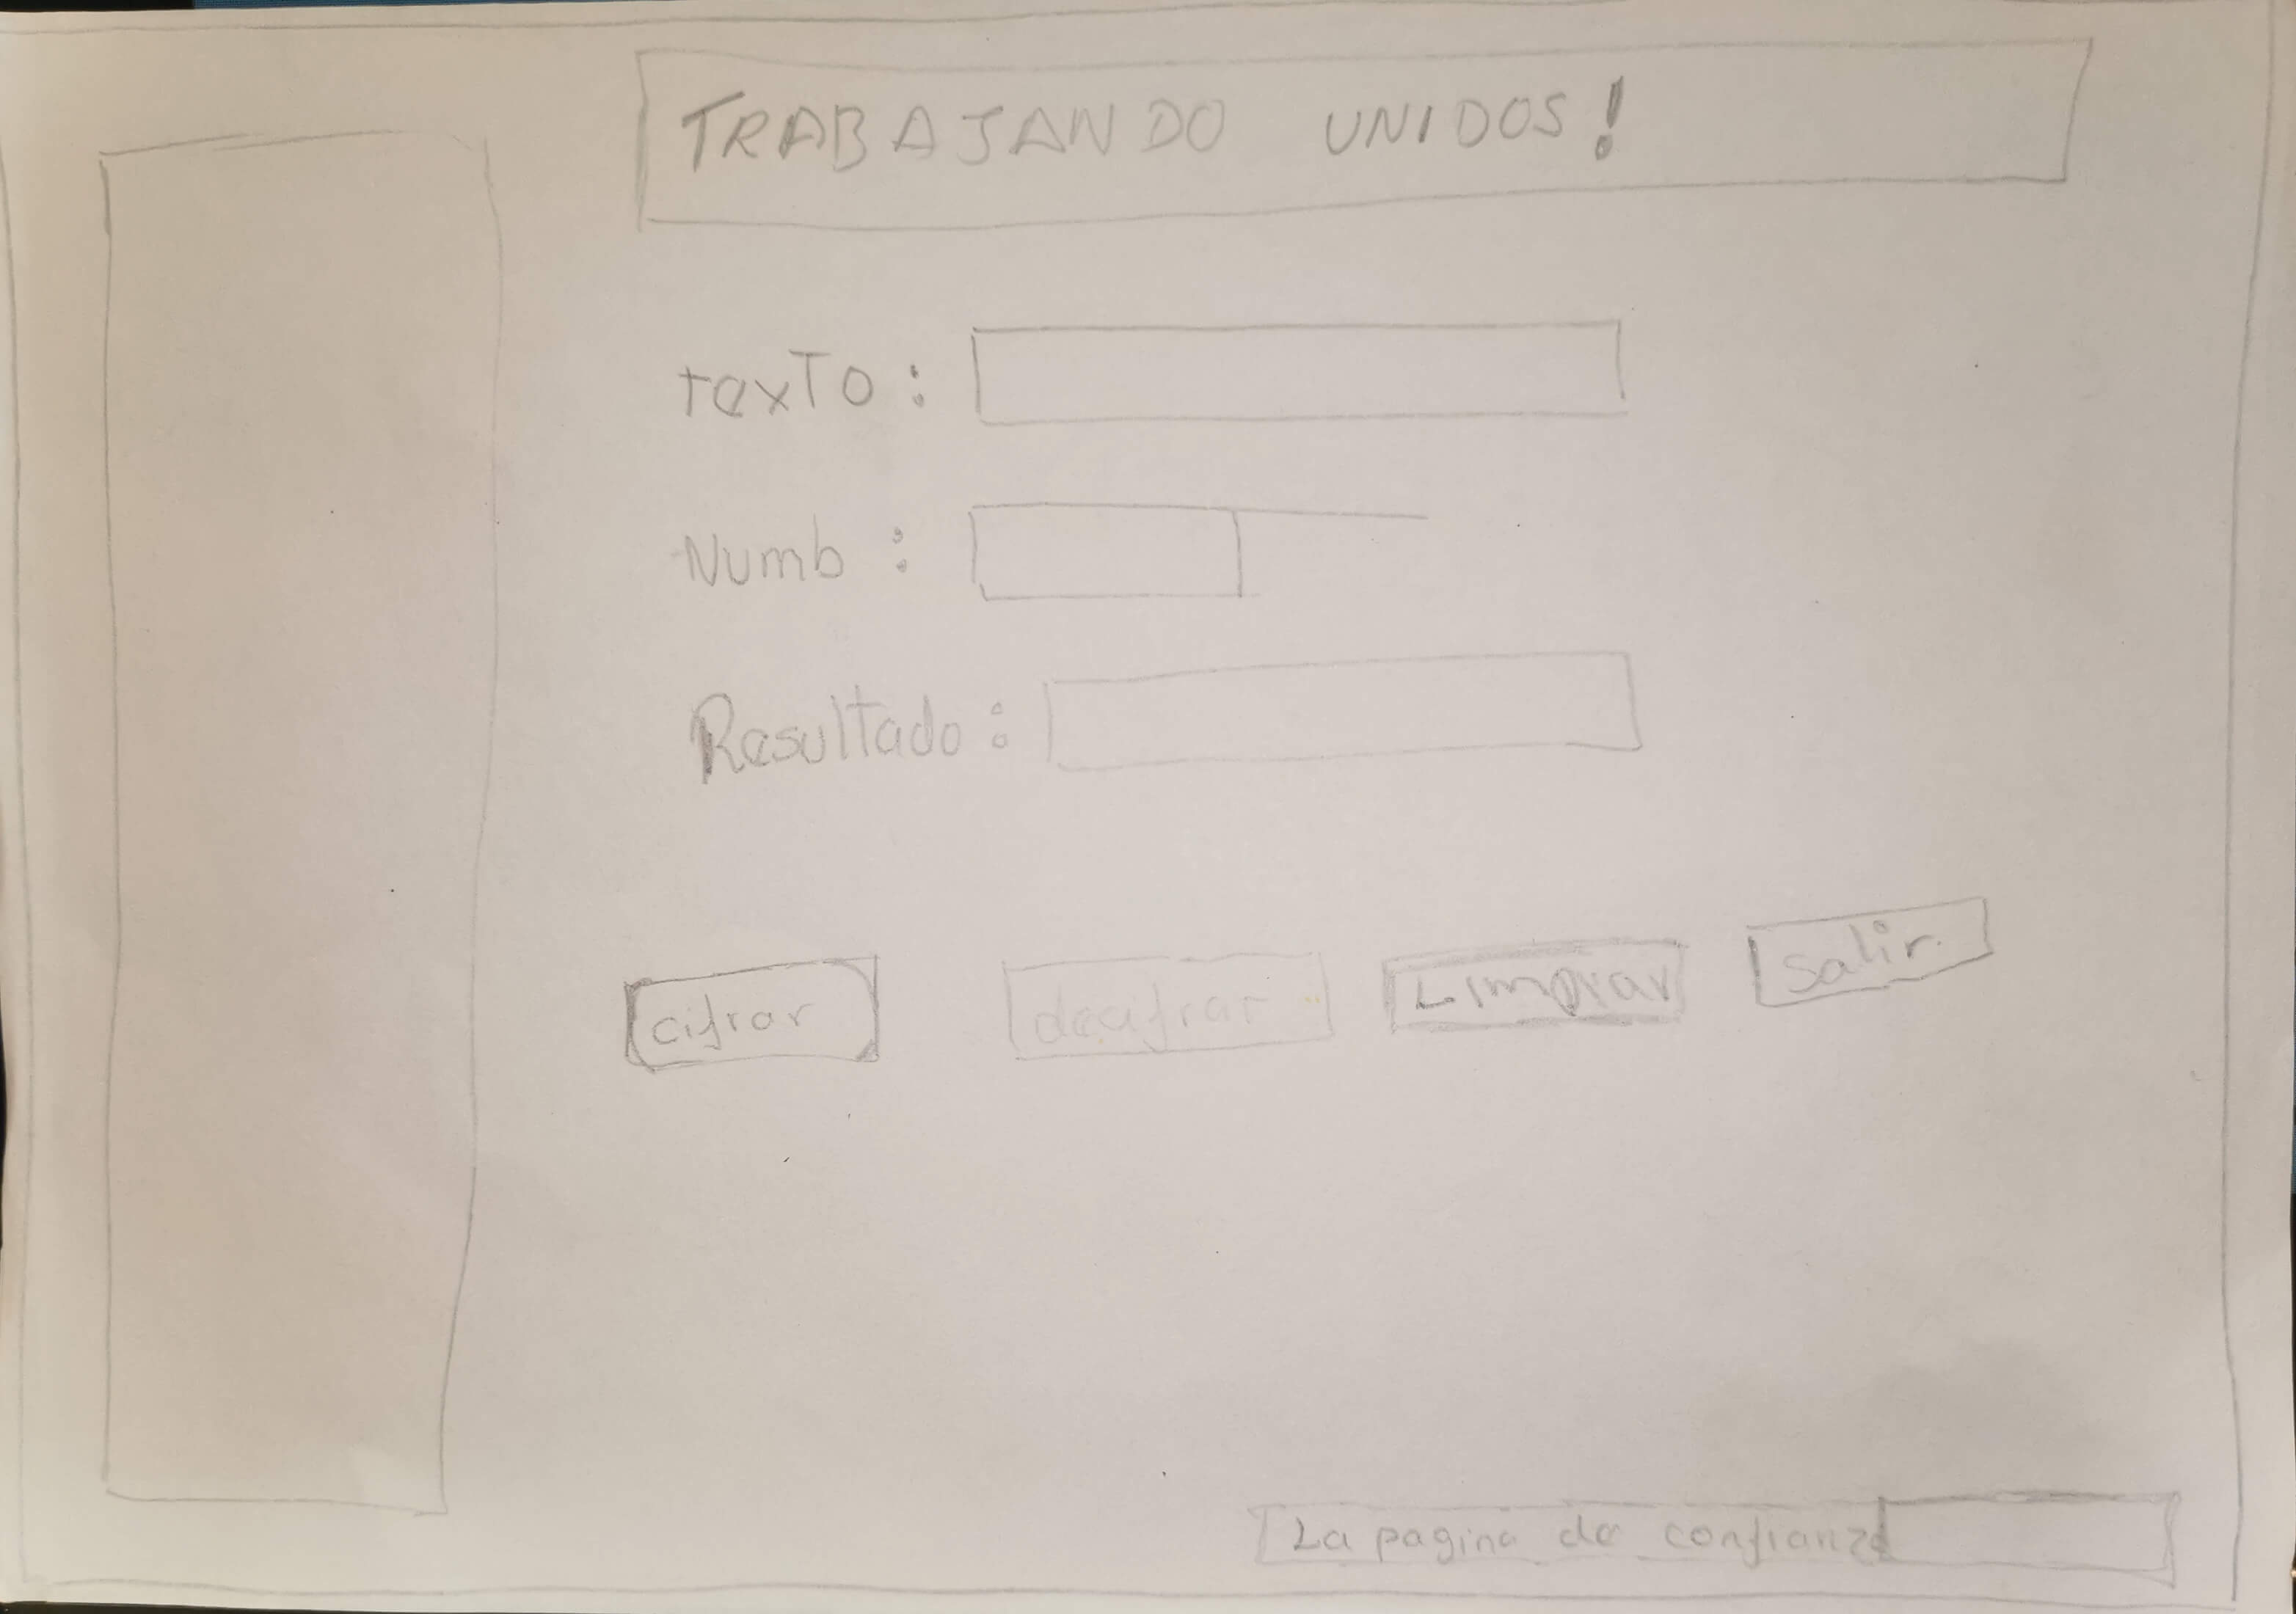 TRABAJANDO UNIDOS!
texTo :
Numb :
Resultado :
cifrar decifrar Limpiar salir
La pagina de confianza